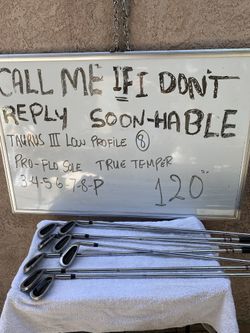 CALL ME IF I DON'T
REPLY SOON-HABLE
TAURUS III LOW PROFILE 8
PRO-FLO SLE TRUE TEMPER
3-4-5-6-7-8-P 120°°